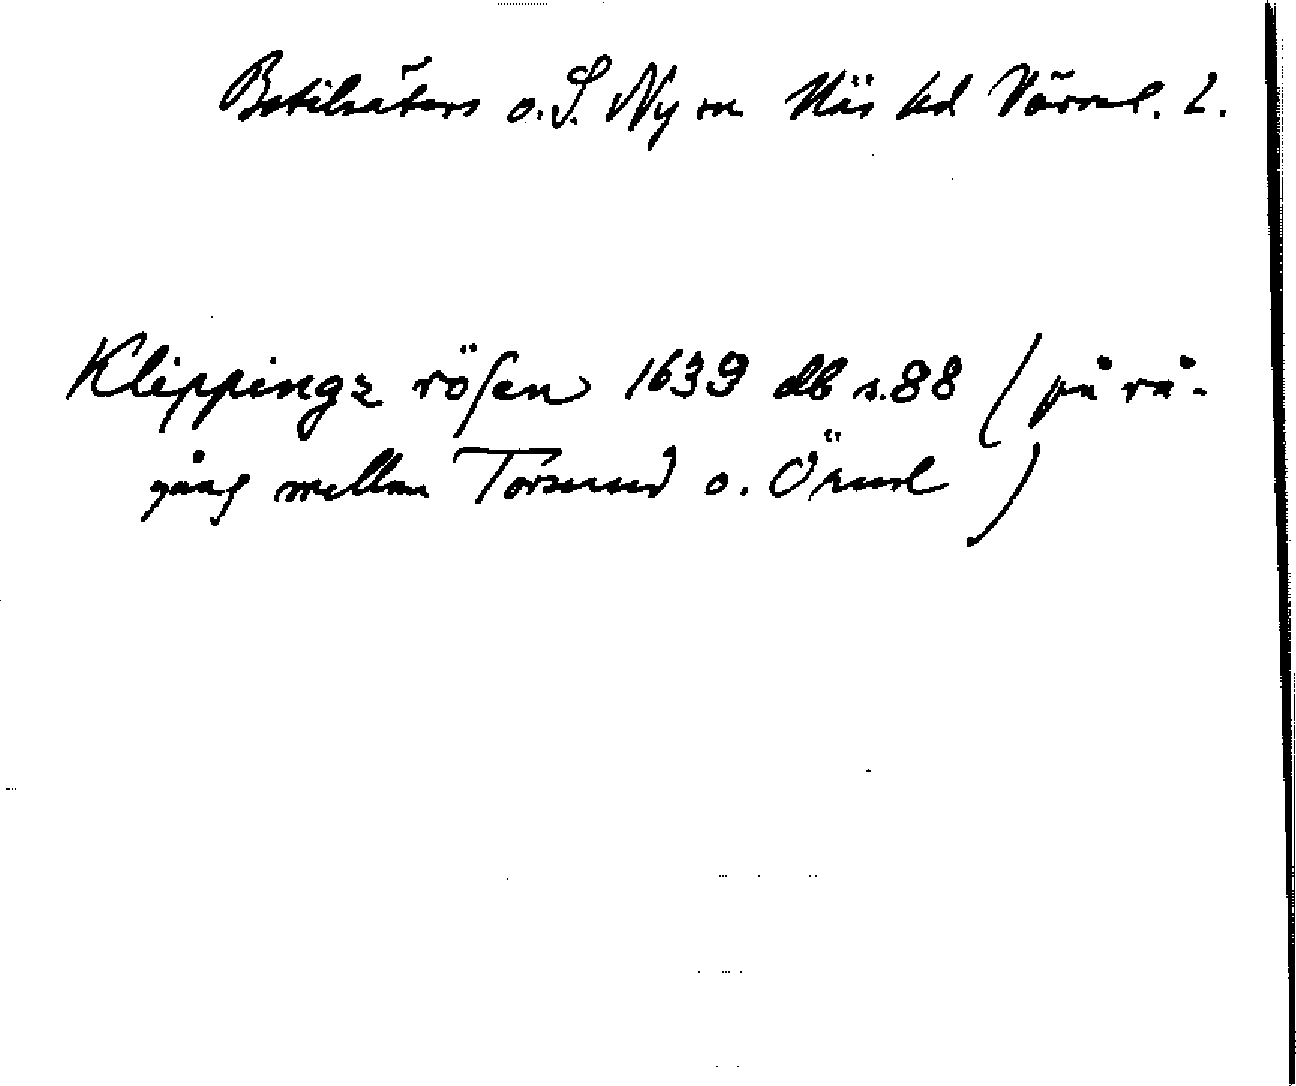 Botilsäters o. S. Ny sn Näs hd Värml. l.
Klippingz rösen 1639 db s. 88 (på rå-
gång mellan Torsrud o. Önul)